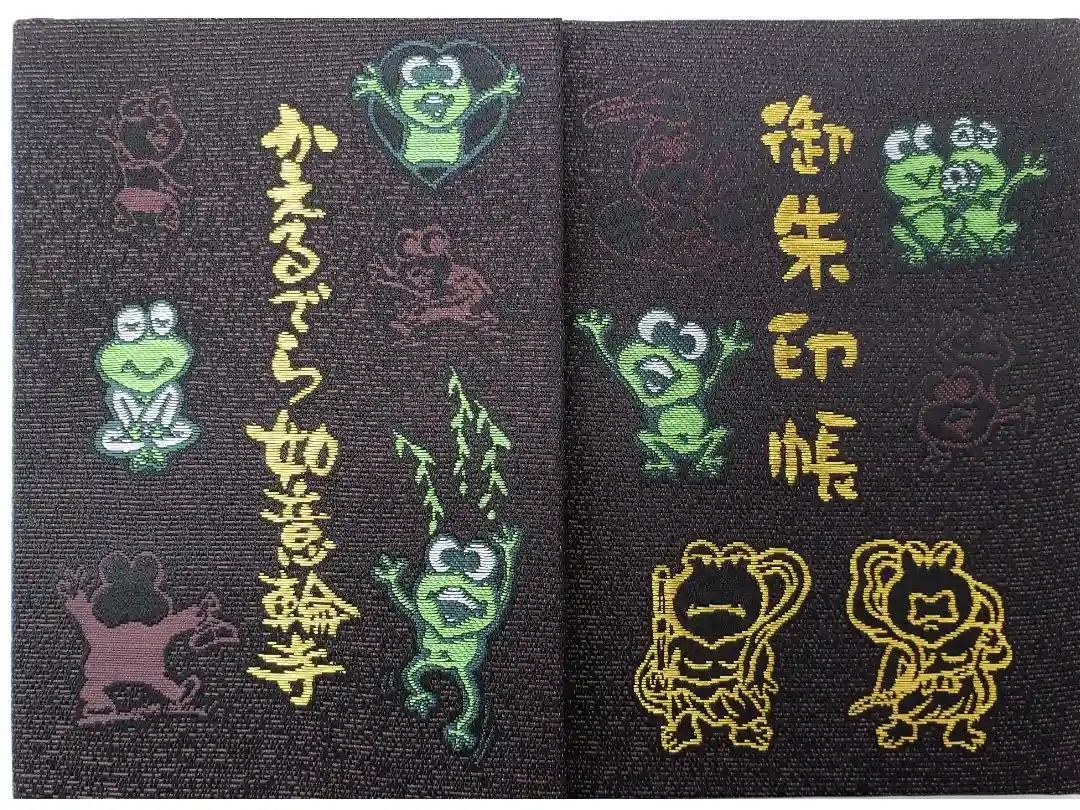 御朱印帳
かえるでら 如意輪寺